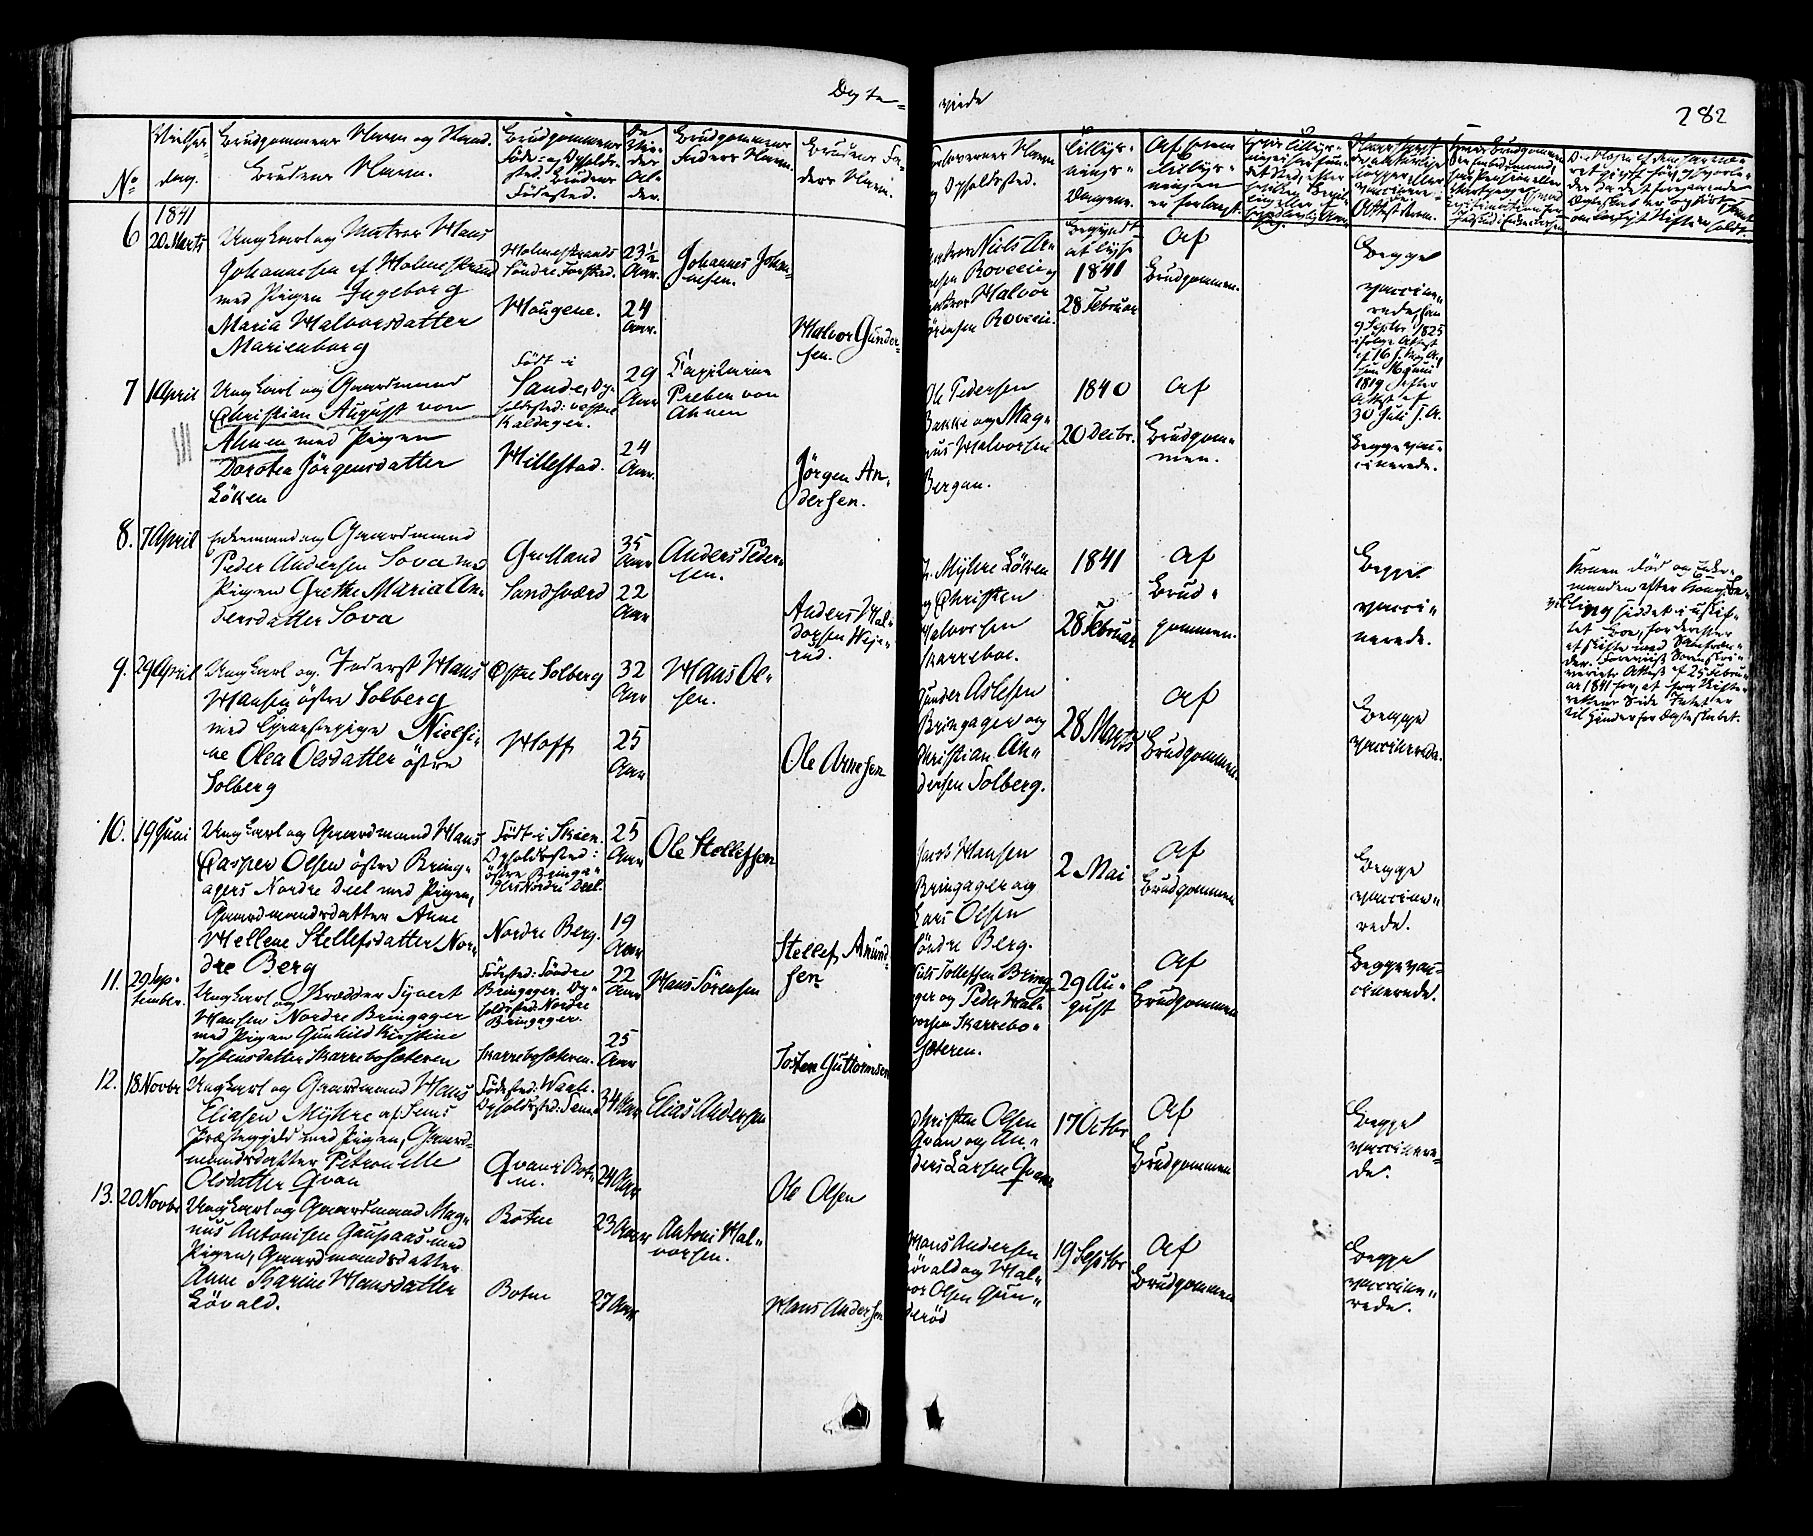 Ægte=
viede
282
No
Vielses-
dag.
Brudgommens Navn og Stand.
Brudens Navn.
Brudgommens
Føde- og Opholds-
sted. Brudens
Fødested.
Al-
der.
Brudgommens
Faders Navn.
Brudens Fa-
ders Navn.
Forlovernes Navn
og Opholdssted.
Lillys-
nings-
Dagene.
Af hvem
Lillys-
ningen
er forlangt.
1841
6
20 Marts
Ungkarl og Matros Hans
Johannesen af Holmestrand
med Pigen Ingeborg
Maria Halvorsdatter
Marienborg
Holmestrands
Søndre Forstad.
Hougene.
23½
Aar.
24
Aar.
Johannes Johan-
nesen.
Halvor Gunder-
sen.
Matros Niels An-
Roveen og
Matros Halvor
Sørensen Roveen.
Begyndt
at lyse
1841
28 Februar
Af
Brudgommen.
Begge
vaccine-
rede, han
9 Septbr 1825
ifølge Attest
af 16 f. M. og A.
hun 16 Juni
1819 efter
Attest af
30 Juli f. A.
7
1 April
Ungkarl og Gaardmand
Christian August von
Ahnen med Pigen
Dorothea Jörgensdatter
Löken
Født i
Sande, Op-
holdssted: vestre
Kaldager.
Hillestad.
29
Aar
24
Aar.
Capitaine
Preben von
Ahnen
Jörgen An-
dersen.
Ole Pedersen
Bakke og Mag-
nus Halvorsen
Bergan.
1840
20 Decbr.
Af
Brudgom-
men.
Begge vac-
cinerede.
8.
7 April
Enkemand og Gaardmand
Peder Andersen Sova med
Pigen Grethe Maria An-
dersdatter Sova
Grolland
Sandsværd
35
Aar
22
Aar
Anders Peder-
sen.
Anders Hal-
vorsen Weje-
rud.
Myhre Löken
og Christen
Halvorsen
Skarreboe.
1841
28 Februar
Af
Brud-
gommen.
Begge
vacci-
nerede.
Konen død og Enke-
manden efter Kongl. Be-
villing siddet i uskif-
tet Boe, for derefter
at skifte med Samfræn-
der. Foreviist Sorenskri-
verens Attest af 25 Febru-
ar 1841 for, at fra Skifte-
rettens Side Intet er
til Hinder for Ægteskabet.
9.
29 April
Ungkarl og Inderst Hans
Hansen östre Solberg
med Gaardspige Nielsi-
ne Olea Olsdatter östre
Solberg
Østre Solberg
Hoff
32
Aar
25
Aar
Hans Ol-
sen.
Ole Arnesen
Gunder Aslesen
Bringager og
Christian An-
dersen Solberg.
28 Marts
Af
Brudgommen.
Begge
vaccinerede.
10.
19 Juni
Ungkarl og Gaardmand Hans
Casper Olsen östre Bring-
agers Nordre Deel med Pigen,
Gaardmandsdatter Anne
Hellene Stellefsdatter Nor-
dre Berg
Født i Skien.
Opholdssted:
östre Bringa-
gers Nordre Deel.
Nordre Berg.
25
Aar
19
Aar
Ole Stellefsen
Stellef Amund-
sen
Jacob Hansen
Bringager og
Lars Olsen
Söndre Berg.
2 Mai
Af
Brudgommen
Begge
vaccine-
rede.
11.
29 Sep-
tember.
Ungkarl og Skrædder Syvert
Hansen Nordre Bringager
med Pigen Gunhild Kirstine
Tostensdatter Skarrebosæteren
Fødested: Söndre
Bringager. Op-
holdssted: Nordre
Bringager.
Skarrebosæteren.
22
Aar
25
Aar
Hans Sörensen
Tosten Guttormsen
Niels Tollefsen Bring-
ager og Peder Hal-
vorsen Skarrebo-
sæteren.
29 Au-
gust
Af
Brudgommen
Begge vac-
cinerede.
12.
18 Novbr
Ungkarl og Gaardmand Hans
Eliasen Myhre af Sems
Præstegjeld med Pigen, Gaard-
mandsdatter Petronelle
Olsdatter Qvan
Fødested: Waale.
Opholdssted: Sem.
Qvan i Bot-
ne.
34 Aar
24 Aar
Elias Andersen
Ole Olsen
Christen Olsen
Qvan og An-
ders Larsen Qvan
17 Octbr
Af
Brudgommen
Begge
vaccinere-
de.
13.
20 Novbr
Ungkarl og Gaardmand Mag-
nus Antonisen Gaupaas med
Pigen, Gaardmandsdatter
Anne Karine Hansdatter
Lövald.
Botne
Botne
23 Aar
27 Aar
Antoni Hal-
vorsen.
Hans Andersen
Hans Andersen
Lövald og Hal-
vor Olsen Gun-
deröd
19 Septbr
Af
Brudgommen
Begge
vaccine-
rede.